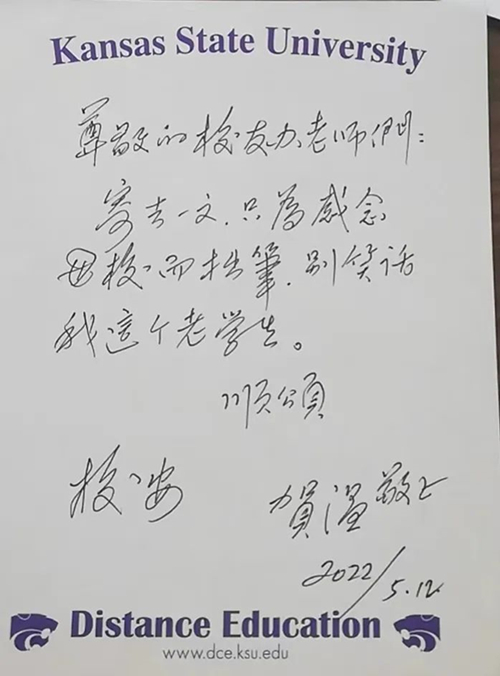 Kansas State University
尊敬的校友办老师們：
寄去一文，只為感念
母校而拙筆，别笑话
我這个老学生。
顺颂
校安
賀温敬上
2022/5.12
Distance Education
www.dce.ksu.edu